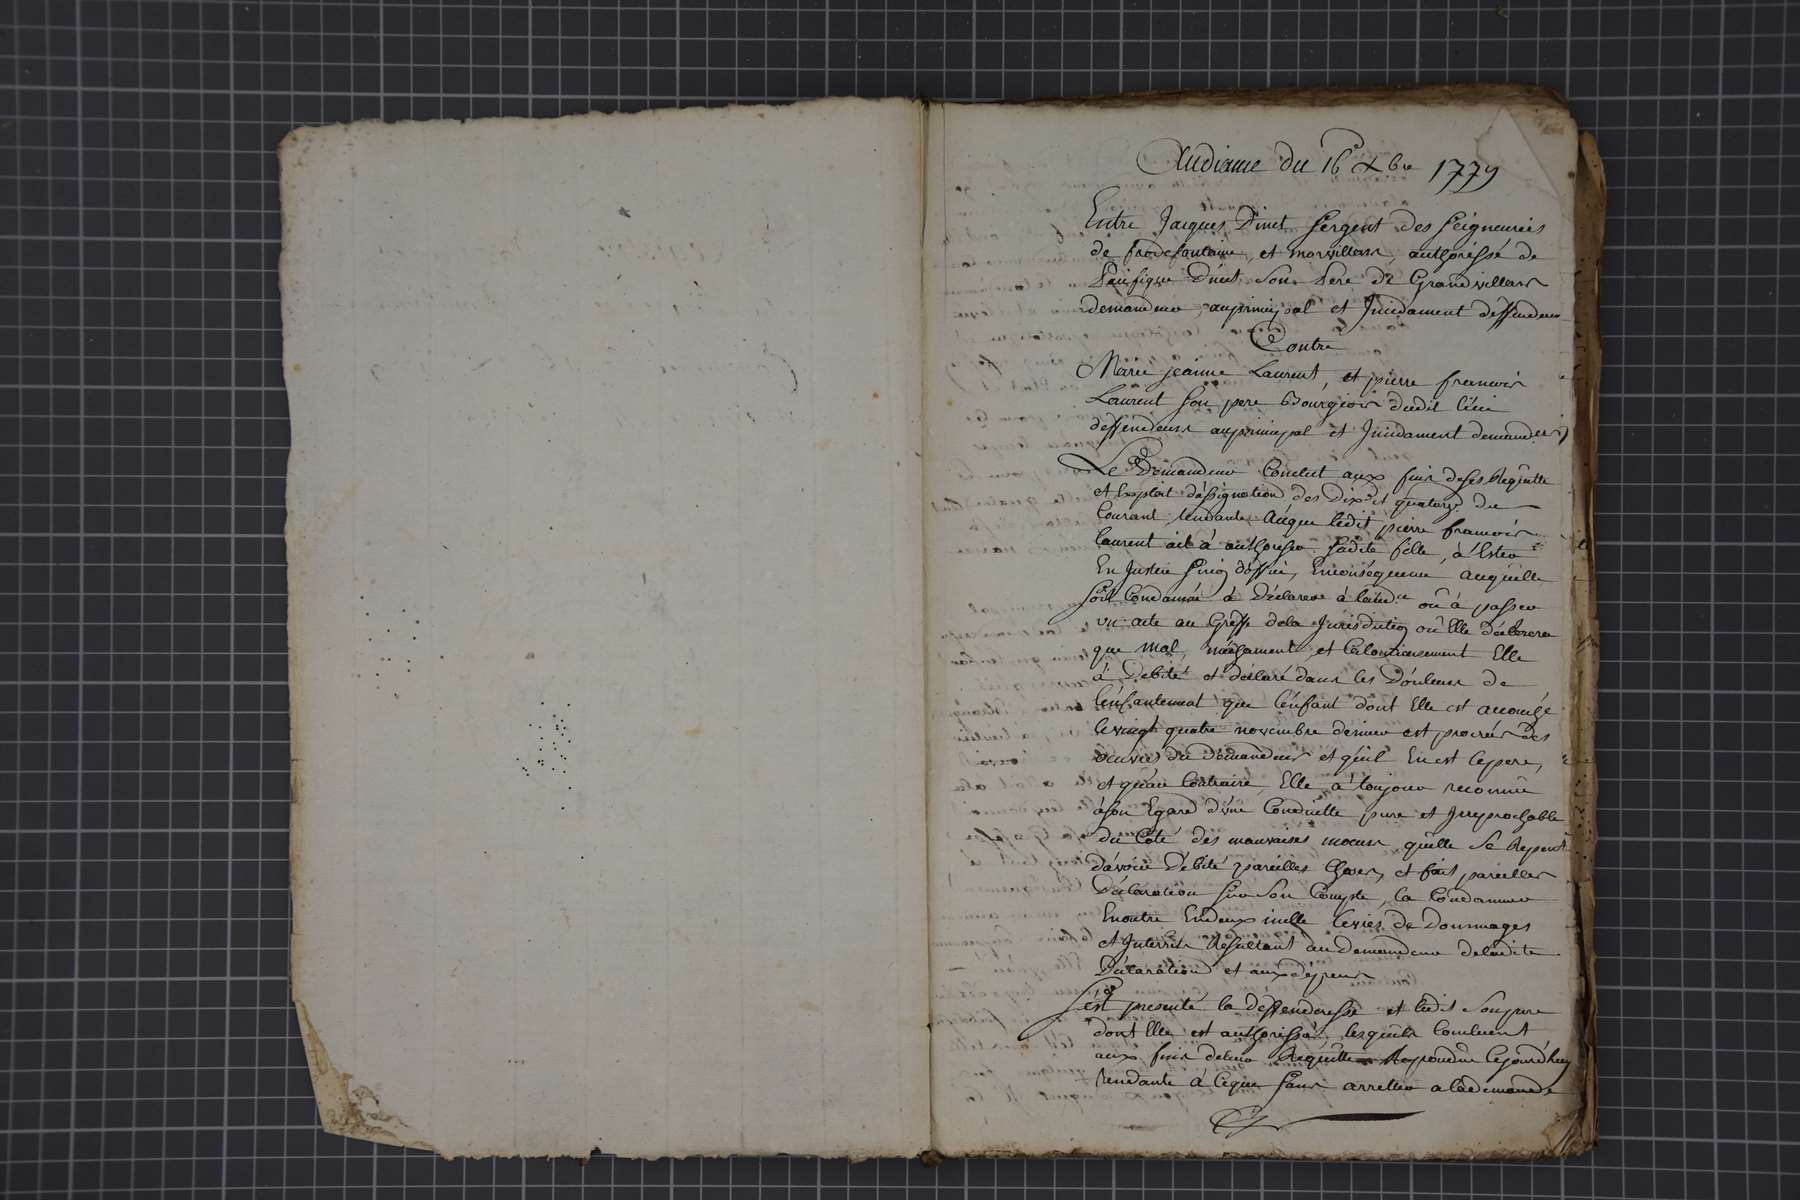 Audiance du 16e Xbre 1779
Entre Jacques Dinet Sergent des Seigneuries
de frodefontaine, et morvillars, authorissé de
Pacifique Dinet Son Pere de Grandvillars
demandeur, auprincipal et Jncidament deffendeur
Contre
Marie jeanne Laurent, et pierre francois
Laurent Son pere Bourgeois dudit lieu
deffendeurs auprincipal et Jncidament demandeurs
Le Demandeur Conclut aux fins deses Requette
et Exploit d'assignation des Dix et quatorze du
Courant tendante Aúque lédit pierre francois
laurent ait à authoriser Sadite fille, à Ester
En Justice Sinon d'office, Enconséquence auquelle
Soit Condamnée à Déclarer à laudce où à passer
un acte au Greffe dela Jurisdiction où Elle déclarera
que mal, méchament et Calomnieusement Elle
à Débité et déclaré dans les Douleurs de
l'énfantement que l'énfant dont Elle est accouchée
levingt quatre novembre dernier est procréé des
œuvres du demandeur et qu'il En est lepere,
et qu'au Contraire, Elle à toujour reconnu
àson Egard d'une Conduitte pure et Jrreprochable
du Coté des mauvaises mœurs, qu'elle Se Repent
d'avoir Débité pareilles Choses, et fait pareilles
Déclaration Sur Son Compte, la Condamner
Enoutre Endeux mille livres de Dommages
et Jnterrets Résultant au demandeur deladite
Déclaration et aux dépens
S'est presenté la deffenderesse et ledit Sonpere
dont Elle est authorissée, lesquels Concluent
aux fins deleur Requette Repondue cejourd'huy
tendante à ceque Sans arretter a lademande